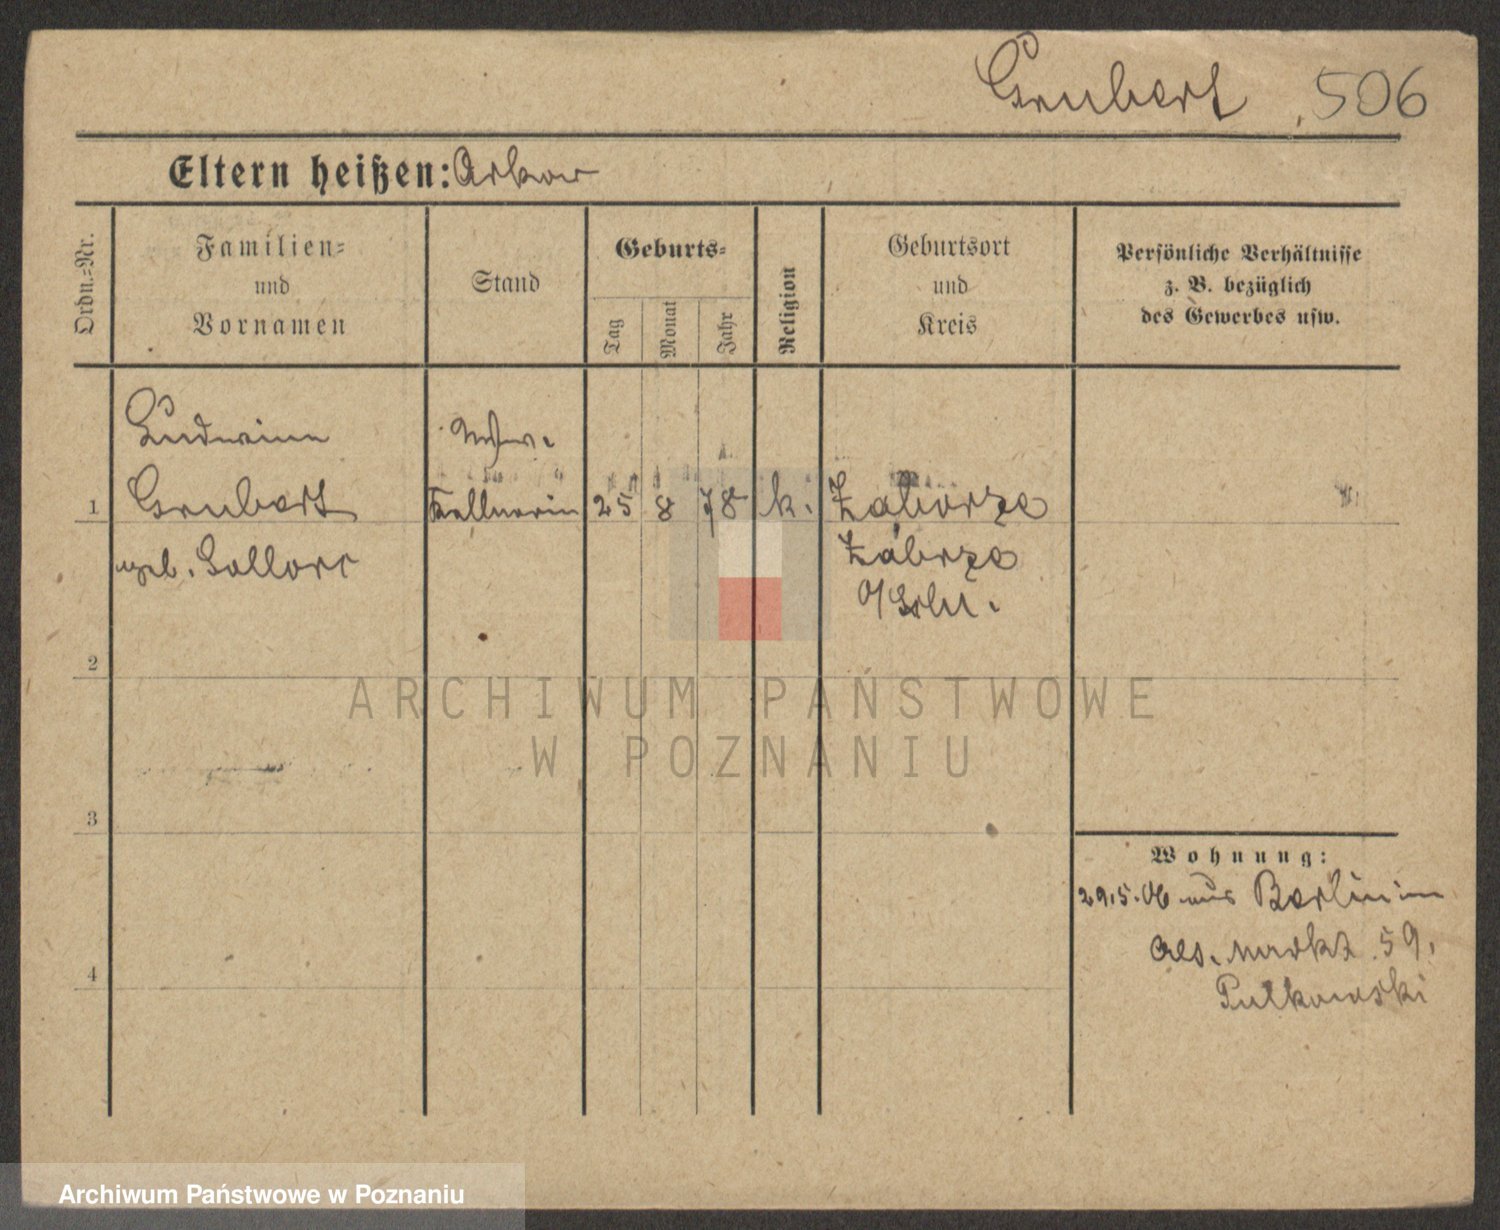 Grubert 506
Eltern heißen:
Ordn.=Nr.
Familien=
und
Vornamen
Stand
Geburts=
Tag
Monat
Jahr
Religion
Geburtsort
und
Kreis
Persönliche Verhältnisse
z. B. bezüglich
des Gewerbes usw.
1
Grubert
geb.
Kellnerin
25 8 78 k.
Zaborze
Zabrze
O/Schl.
2
3
4
Wohnung:
29.5.06 aus Berlin in
markt 59.
Putkowski
ARCHIWUM PAŃSTWOWE
W POZNANIU
Archiwum Państwowe w Poznaniu